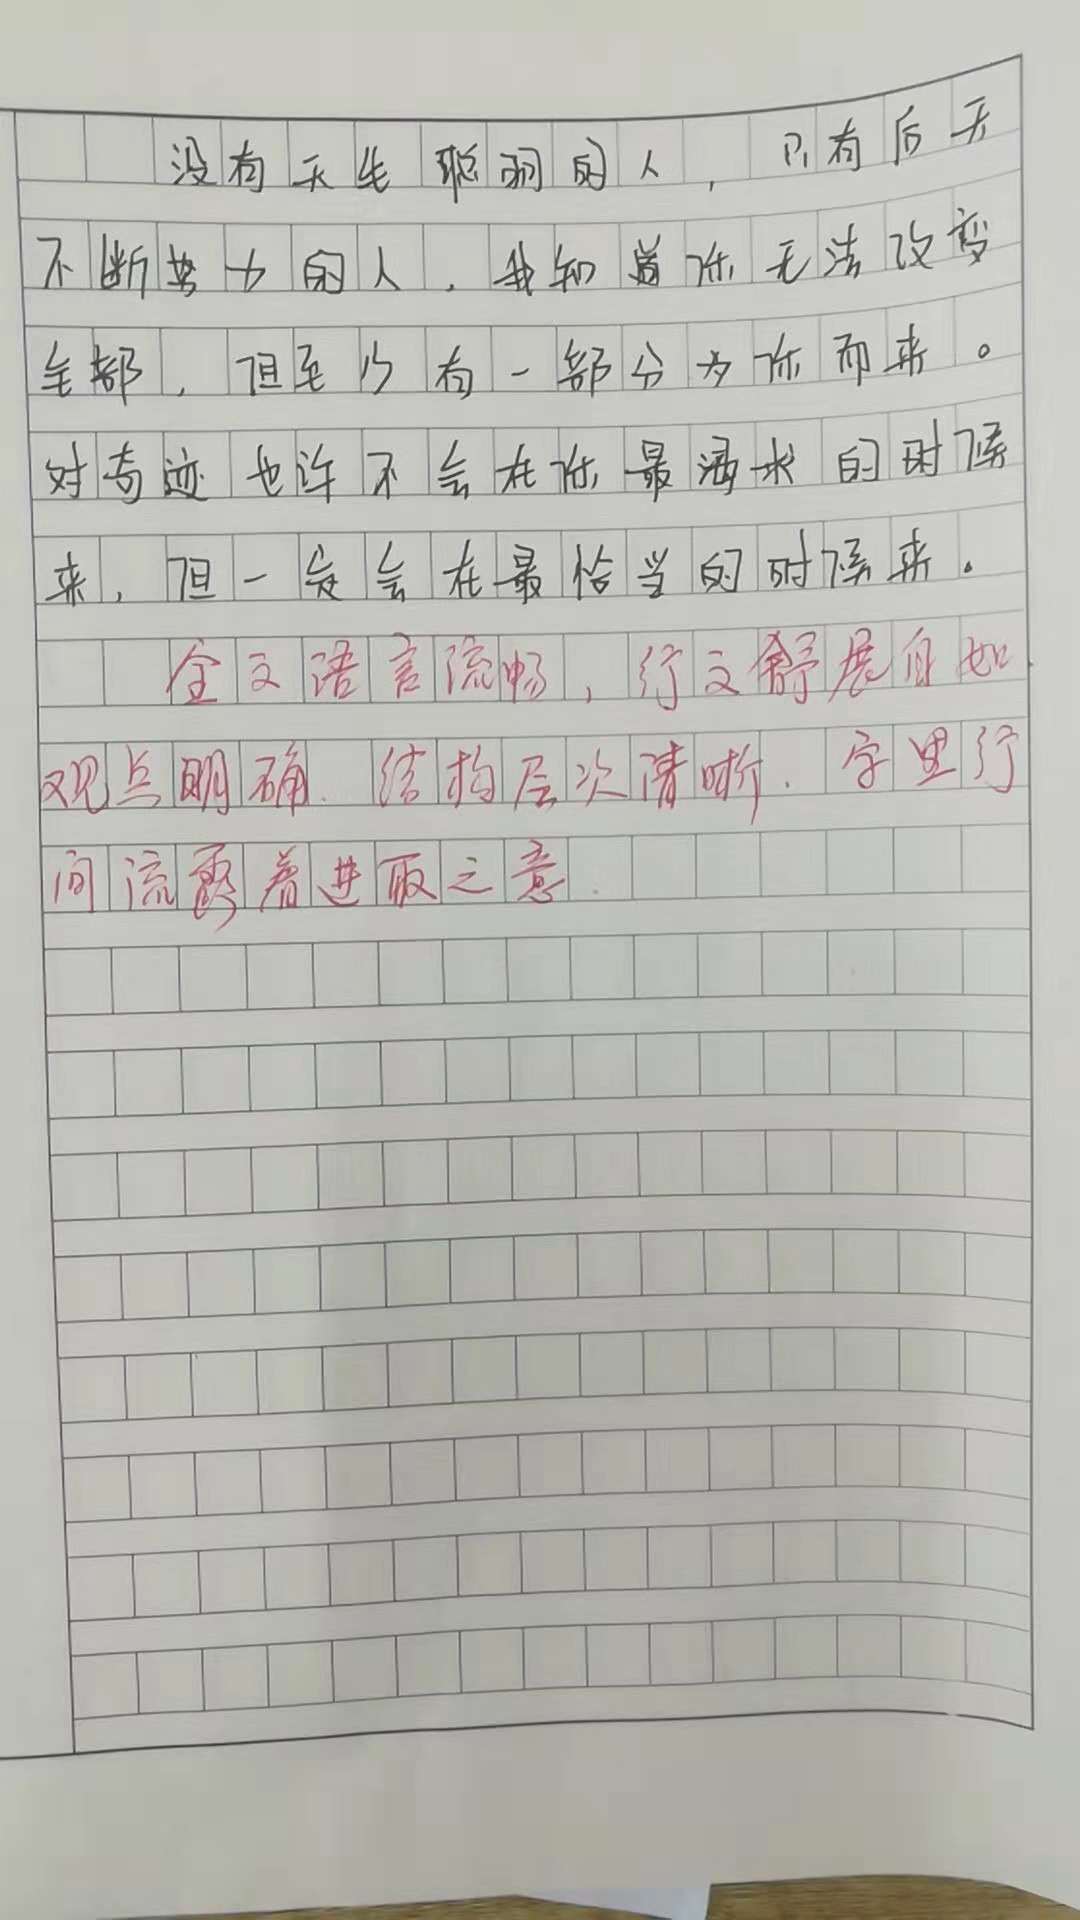 没有天生聪明的人，只有后天
不断努力的人，我知道你无法改变
全部，但至少有一部分为你而来。
对奇迹也许不会在你最渴求的时候
来，但一定会在最恰当的时候来。
全文语言流畅，行文舒展自如
观点明确．结构层次清晰．字里行
间流露着进取之意．